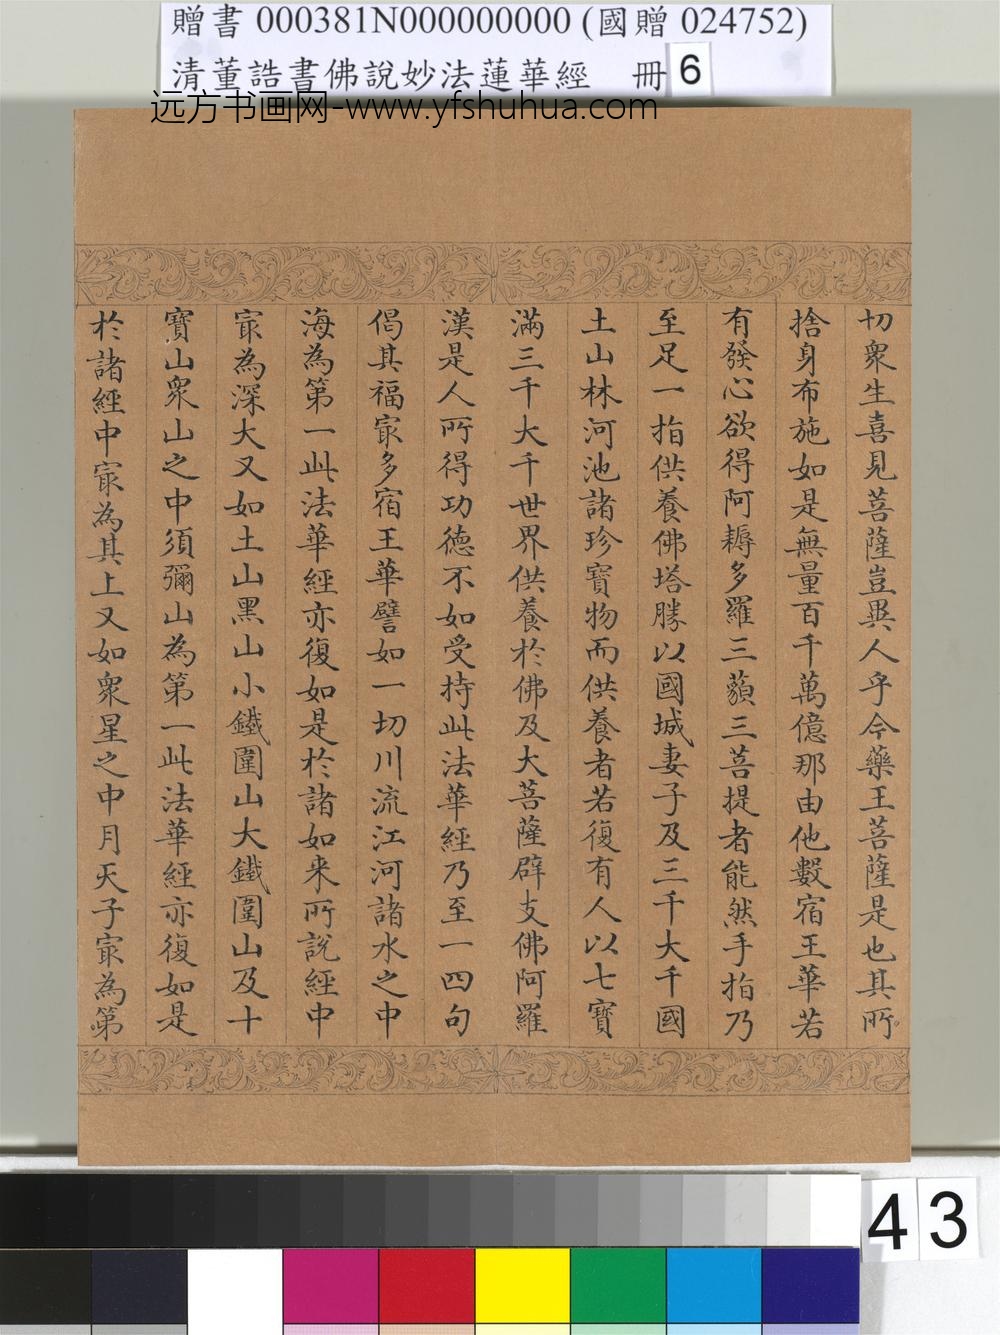 贈書 000381N000000000 (國贈 024752)
清董誥書佛說妙法蓮華經 冊 6
远方书画网-www.yfshuhua.com
切衆生喜見菩薩豈異人乎今藥王菩薩是也其所
捨身布施如是無量百千萬億那由他數宿王華若
有發心欲得阿耨多羅三藐三菩提者能然手指乃
至足一指供養佛塔勝以國城妻子及三千大千國
土山林河池諸珍寶物而供養者若復有人以七寶
滿三千大千世界供養於佛及大菩薩辟支佛阿羅
漢是人所得功德不如受持此法華經乃至一四句
偈其福㝡多宿王華譬如一切川流江河諸水之中
海為第一此法華經亦復如是於諸如来所說經中
㝡為深大又如土山黑山小鐵圍山大鐵圍山及十
寶山衆山之中須彌山為第一此法華經亦復如是
於諸經中㝡為其上又如衆星之中月天子㝡為第
43